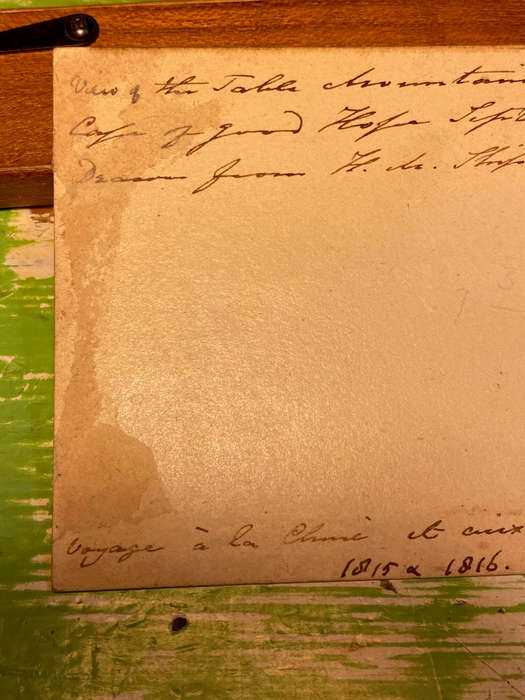 View of the Table Mountain
Cape of Good Hope Sept
Drawn from H. M. Ship
Voyage à la Chine et aux
1815 à 1816.